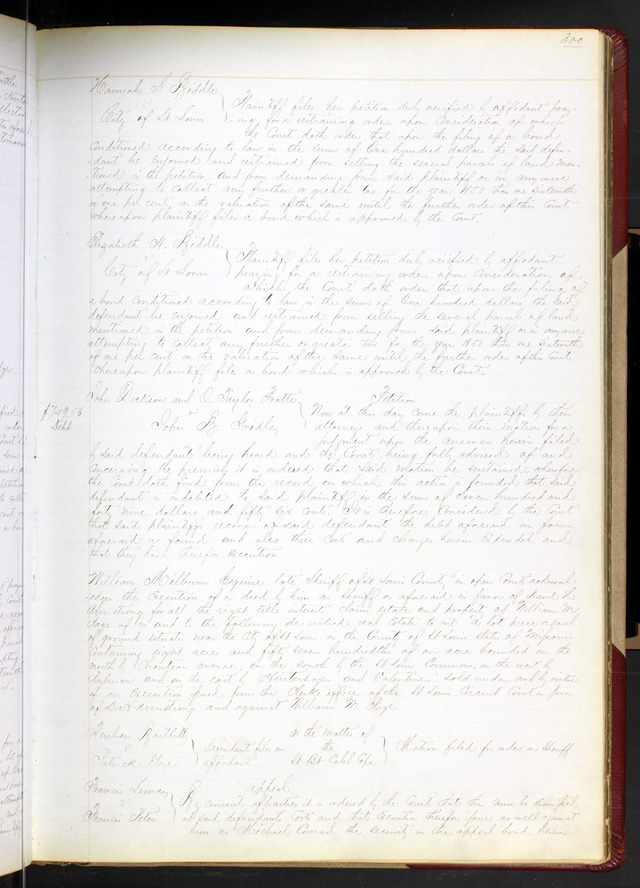 300
Hannah S Biddle
vs
City of St Louis
Plaintiff files her petition duly verified by affidavit pray-
-ing for a restraining order upon Consideration of which
the Court doth order that upon the filing of a bond
Conditioned according to law in the sum of One hundred dollars the said defen-
dant be enjoined and restrained from selling the several parcels of land men-
tioned in the petition and from demanding from said plaintiff or in anywise
attempting to collect any further or greater tax for the year 1850 than one sixteenth
of one per cent on the valuation of the same until the further order of this Court
whereupon plaintiff files a bond which is approved by the Court.
Elizabeth N. Biddle
vs
City of St Louis
Plaintiff files her petition duly verified by affidavit
praying for a restraining order upon Consideration of
which the Court doth order that upon the filing of
a bond Conditioned according to law in the sum of One hundred dollars the said
defendant be enjoined and restrained from selling the several parcels of land
mentioned in the petition and from demanding from said plaintiff or in anywise
attempting to collect any further or greater tax for the year 1850 than one sixteenth
of one per cent on the valuation of the same until the further order of this Court
whereupon plaintiff files a bond which is approved by the Court.
John Dickson and O Taylor
vs
John B. Gridley
Petition
$749.56
Debt
Now at this day come the plaintiffs by their
attorney and thereupon their motion for a
judgment upon the answer herein filed
by said defendant being heard and the Court being fully advised of and
concerning the premises it is ordered that said motion be sustained wherefore
the Court doth find from the record on which this action is founded that said
defendant is indebted to said plaintiffs in the sum of Seven hundred and
forty nine dollars and fifty six cents. It is therefore Considered by the Court
that said plaintiffs recover of said defendant the debt aforesaid in form
aforesaid as found and also their Cost and charges herein Expended and
that they have therefor Execution
William Milburn Esquire late Sheriff of St Louis County in open Court acknowl-
edges the Execution of a deed by him as Sheriff as aforesaid in favor of David H
Armstrong for all the right title interest claim estate and property of William M
Page of in and to the following described real Estate to wit: A lot piece or parcel
of ground situate near the City of St Louis in the County of St Louis State of Missouri
Containing eight acres and fifty seven hundredths of an acre bounded on the
north by Chouteau avenue, on the south by the St Louis Commons, on the west by
and on the east by and Valentine: sold under and by virtue
of an Execution issued from the Clerks office of the St Louis Circuit Court in favor
of D H Armstrong and against William M Page
Bartlett
vs
Patrick
defendant files an
affidavit
In the matter of
the
St Bt Caleb Cope
Motion filed for order on Sheriff
Francis Lemay
vs
Francis Peter
appeal
By consent of parties it is ordered by the Court that this cause be dismissed
at said defendants Costs and that Execution therefor issue as well against
him as Michael Conrad the security in the appeal bond herein